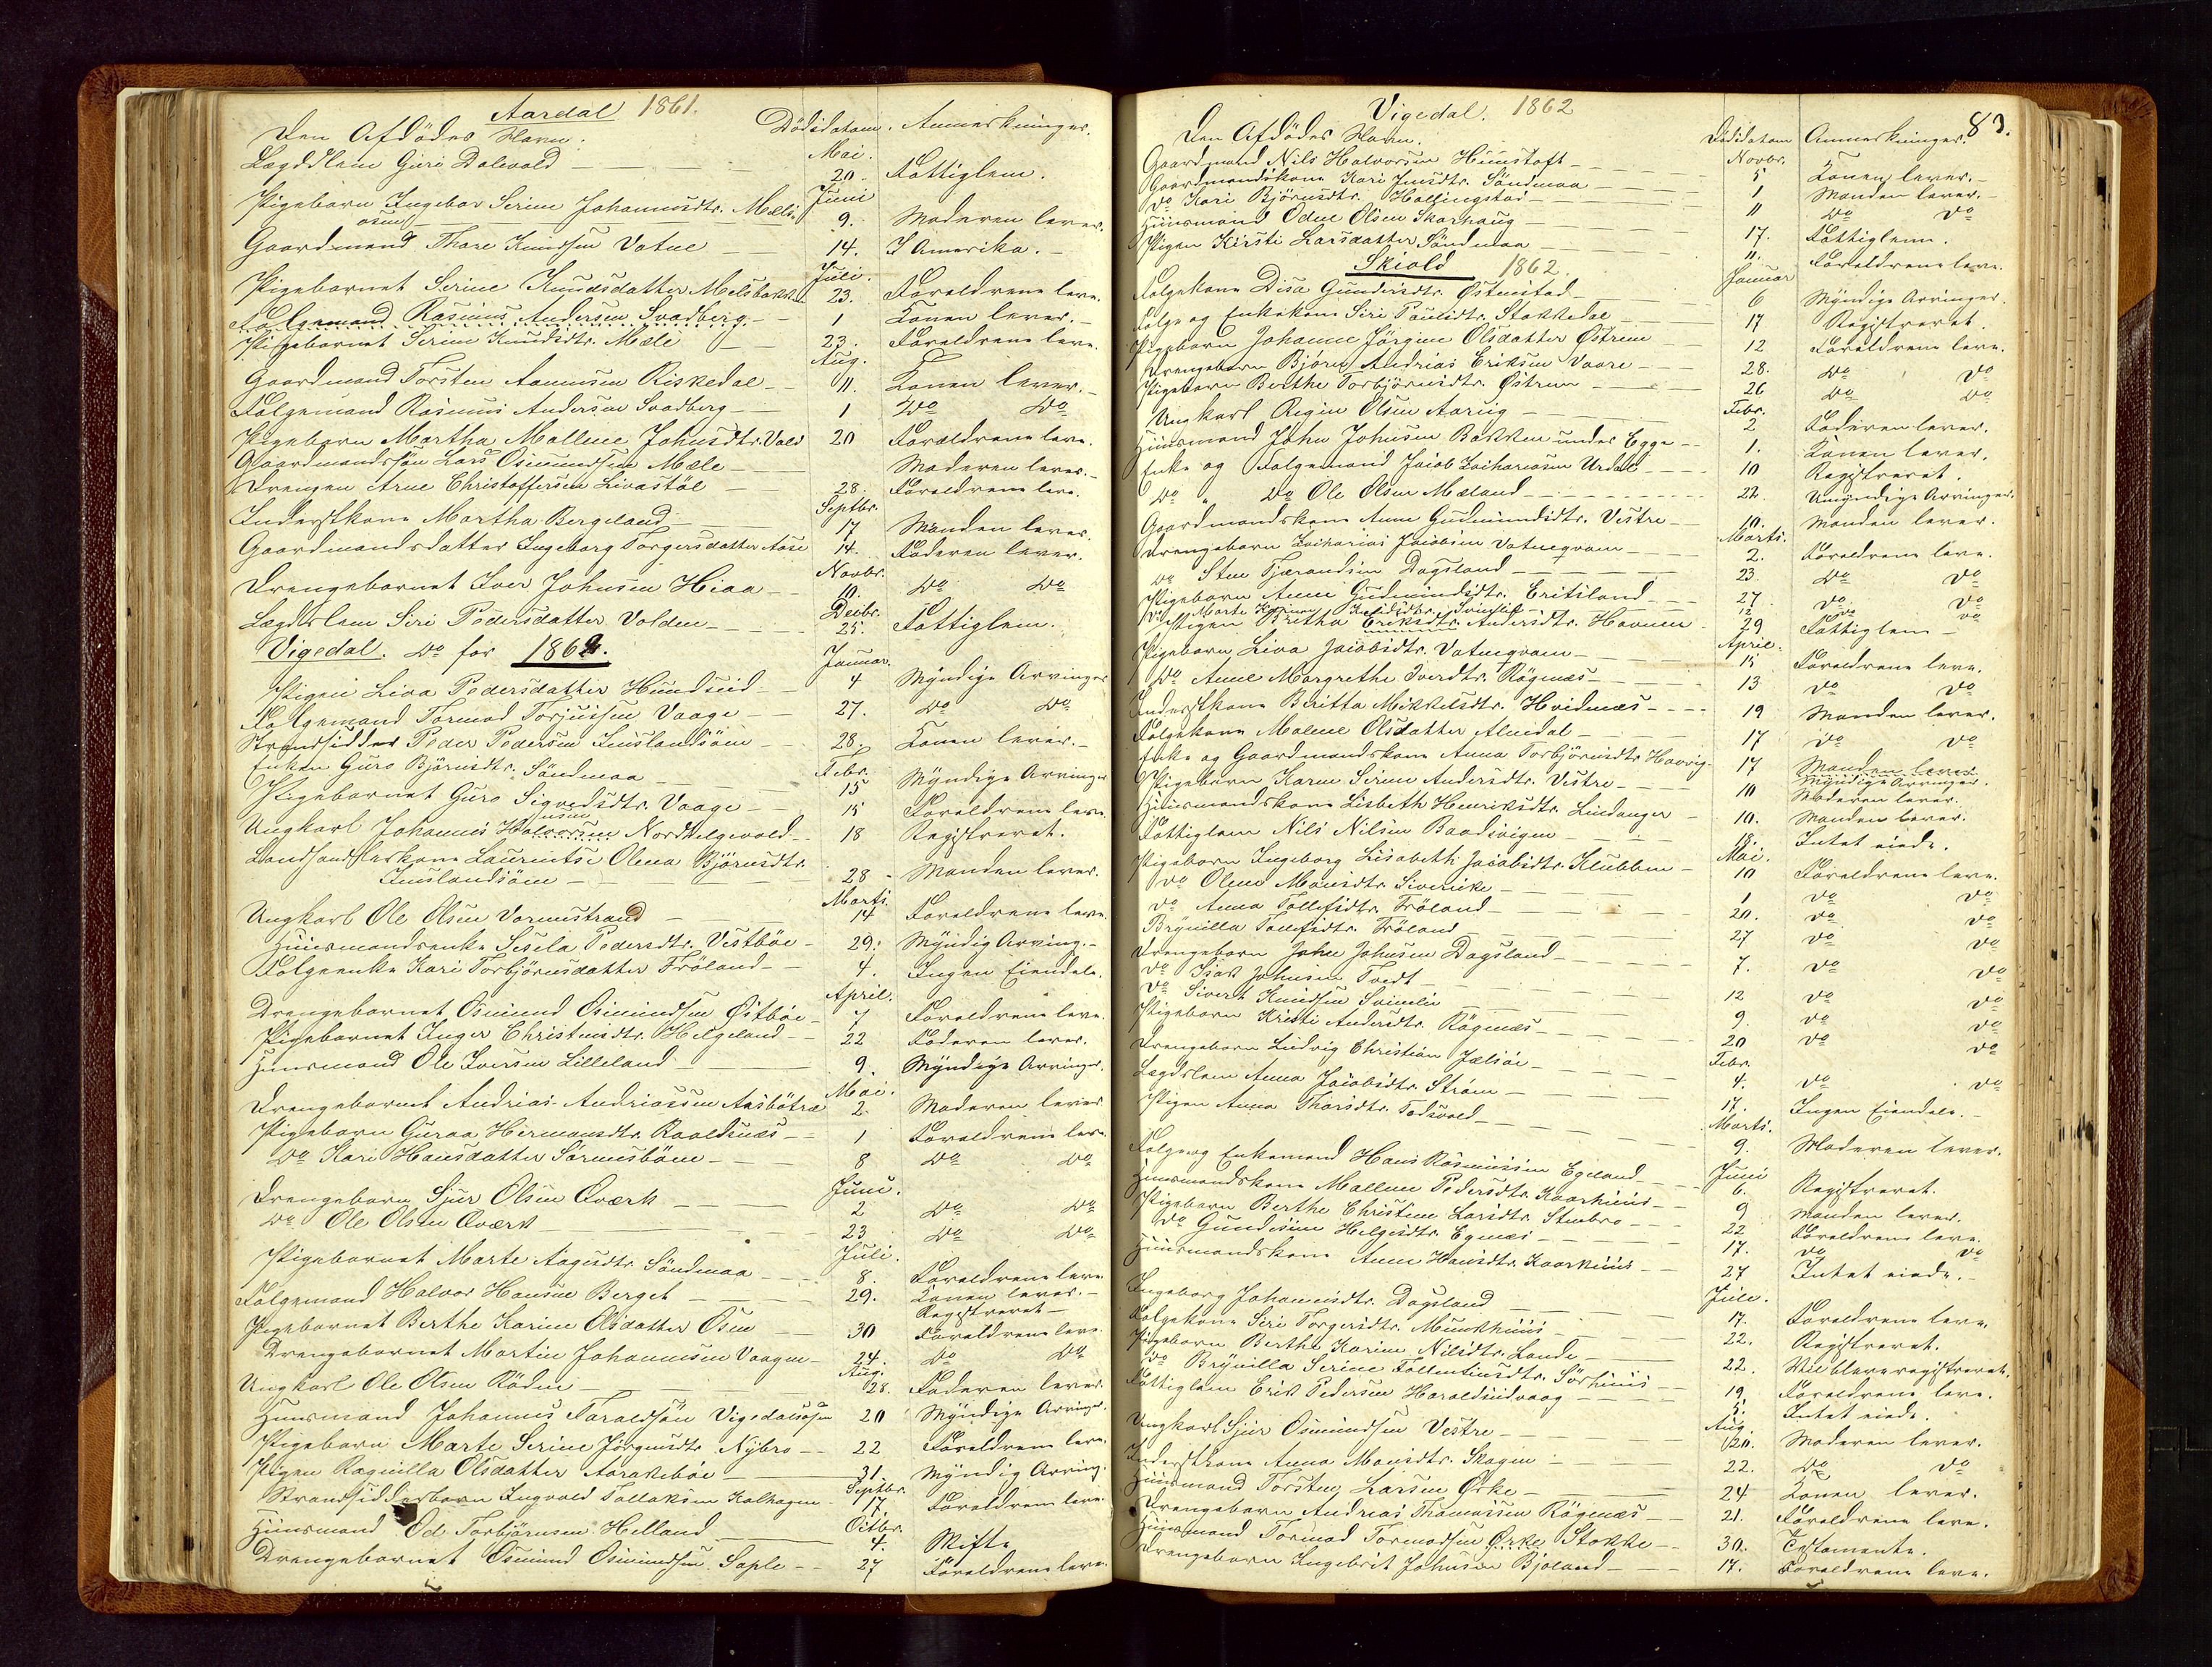 Aardal 1861.
Den Afdødes Navn. Dødsdatum. Anmerkninger.
Mai.
Lægdslem Guri Dalvold 20. Fattiglem.
Juni
Pigebarn Ingebor Serine Johannesdtr. Mæls- 9. Moderen lever.
osen
Gaardmand Thore Knudsen Vatne 14. I Amerika.
Juli.
Pigebarnet Serine Knudsdatter Melsbakken 23. Forældrene leve.
Folgemand Rasmus Andersen Svadberg 1 Konen lever.
Pigebarnet Serine Knudsdtr. Mæle 23. Forældrene leve.
Aug.
Gaardmand Torsten Aanensen Riskedal 11. Konen lever.
Folgemand Rasmus Andersen Svadberg 1 Do Do
Pigebarn Martha Mallene Johnsdtr. Vald 20 Forældrene leve.
Gaardmandssøn Lars Osmundsen Mæle Moderen lever.
Drengen Arne Christoffersen Livastøl 28. Forældrene leve.
Septbr.
Inderstkone Martha Bergeland 17 Manden lever.
Gaardmandsdatter Ingeborg Torgersdatter Aase 14. Faderen lever.
Novbr.
Drengebarnet Iver Johnsen Hiaa 10. Do Do
Decbr.
Lægdslem Siri Pedersdatter Valden 25. Fattiglem.
Vigedal. Do for 1862.
Januar.
Pigen Liva Pedersdatter Hundseid 4 Myndige Arvinger
Folgemand Tormod Torjussen Vaage 27. Do Do
Strandsidder Peder Pedersen Imslandsøen 28. Konen lever.
Febr.
Enken Guro Bjørnsdtr. Søndenaa 15 Myndige Arvinger
Pigebarnet Guro Sigvedsdtr. Vaage 15 Forældrene leve.
nsen
Ungkarl Johannes Halvorsen Nordtelgevold 18 Registreret.
Landhandlerkone Laurentse Olena Bjørnsdtr.
Imslandsøen 28 Manden lever.
Marts.
Ungkarl Ole Olsen Vormestrand 14 Forældrene leve.
Huusmandsenke Sesela Pedersdtr. Vestbøe 29. Myndig Arving.
Folgeenke Kari Torbjørnsdatter Frøland 4. Ingen Eiendele.
April.
Drengebarnet Osmund Osmundsen Østbøe 7 Forældrene leve.
Pigebarnet Inger Christensdtr. Helgeland 22 Faderen lever.
Huusmand Ole Iversen Lilleland 9. Myndige Arvinger.
Mai.
Drengebarnet Andreas Andreassen Aasbøtræ 2. Moderen lever
Pigebarn Guroa Hermansdtr. Raaldsnæs 1 Forældrene leve.
Do Kari Hansdatter Sørensbøen 8 Do Do
Juni.
Drengebarn Sjur Olsen Qværk 2 Do Do
Do Ole Olsen Qværk 23 Do Do
Juli.
Pigebarnet Marte Aagesdtr. Søndenaa 8. Forældrene leve
Folgemand Halvor Hansen Berget 29. Konen lever.
Registreret
Pigebarnet Berthe Karine Olsdatter Osen 30 Forældrene leve.
Drengebarnet Martin Johannesen Vaagen 24. Do Do
Aug.
Ungkarl Ole Olsen Rødne 28. Faderen lever.
Huusmand Johannes Taraldsøn Vigedalsosen 20 Myndige Arvinger.
Pigebarn Marte Serine Jørgensdtr. Nybro 22 Forældrene leve.
Pigen Ragnilla Olsdatter Aarakebøe 31 Myndig Arving.
Septbr.
Strandsidderbarn Ingvald Tallaksen Kalhagen 17. Forældrene leve.
Octbr.
Huusmand Od Torbjørnsen Helland 4. Skifte
Drengebarnet Osmund Osmundsen Saple 27 Forældrene leve.
Vigedal. 1862 83.
Den Afdødes Navn. Dødsdatum Anmerkninger.
Novbr.
Gaardmand Nils Halvorsen Hunstoft 5 Konen lever.
Gaardmandskone Kari Jensdtr. Søndenaa 1 Manden lever.
Do Kari Bjørnsdtr. Hallingstad 11 Do Do
Huusmand Odne Olsen Skarhaug 17. Fattiglem.
Pigen Kirsti Larsdatter Søndenaa 11. Forældrene leve.
Skiold 1862.
Januar
Folgekone Disa Gundersdtr. Østenstad 6 Myndige Arvinger.
Folge og Enkekone Siri Paulsdtr. Stakkedal 17 Registreret.
Pigebarn Johanne Jørgine Olsdatter Østrem 12 Forældrene leve.
Drengebarn Bjørn Andreas Eriksen Vaare 28. Do Do
Pigebarn Berthe Torbjørnsdtr. Østrem 26 Do Do
Febr.
Ungkarl Regin Olsen Aarvig 2 Faderen lever.
Huusmand John Johnsen Bakken under Egge 1. Konen lever.
Enke og Folgemand Jacob Zachariasen Urdal 10 Registreret.
Do " Do Ole Olsen Mæland 22 Umyndige Arvinger.
Gaardmandskone Anne Gudmundsdtr. Vestre 10. Manden lever.
Marts.
Drengebarn Zacharias Jacobsen Vatnegvam 2. Forældrene leve.
Do Sten Tjerandsen Dagsland 23. Do Do
Pigebarn Anne Gudmundsdtr. Eritsland 27 Do Do
Do Marte Karine Knudsdtr. Svinelie 12 Do Do
Pigen Bretha Eriksdtr. Andersdtr. Havnen 29 Fattiglem
April.
Pigebarn Liva Jacobsdtr. Vatnegvam 15 Forældrene leve.
Do Anne Margrethe Iversdtr. Røgenæs 13 Do Do
Inderstkone Beritta Mikkelsdtr. Hvidenæs 19 Manden lever.
Folgekone Malene Olsdatter Alendal 17 Do Do
Enke og Gaardmandskone Anna Torbjørnsdtr Haavig 17 Manden lever
Myndige Arvinger.
Pigebarn Karen Serine Andersdtr. Vestre 10 Moderen lever.
Huusmandskone Lisbeth Henriksdtr. Lindanger 10. Manden lever.
Fattiglem Nils Nilsen Baadsvigen 18. Intet eiede.
Mai.
Pigebarn Ingeborg Lisabeth Jacobsdtr. Klubben 10 Forældrene leve.
Do Olene Monsdtr. Siverike 1 Do Do
Do Anna Tollefsdtr. Frøland 20. Do Do
Brynilla Tollefsdtr. Frøland 27 Do Do
Drengebarn John Johnsen Dagsland 7. Do Do
Do Isak Johnsen Tvedt 12 Do Do
Do Sivert Knudsen Svinelie 9. Do Do
Pigebarn Kristi Andersdtr. Røgenæs 20 Do Do
Febr.
Drengebarn Ludvig Christian Jælsøe 4. Do Do
Lægdslem Anna Jacobsdtr. Strøm 17. Ingen Eiendele.
Marts.
Pigen Anna Thorsdtr. Todsvold 9. Moderen lever.
Juni
Folge og Enkemand Hans Rasmussen Egeland 6. Registreret.
Huusmandskone Mallene Pedersdtr. Kaarhuus 9 Manden lever.
Pigebarn Berthe Christine Larsdtr. Stenbro 22 Forældrene leve.
Do Gundesine Helgesdtr. Egenæs 17. Do Do
Huusmandskone Anne Hansdtr. Kaarhuus 27 Intet eiede.
Juli.
Ingeborg Johannesdtr. Dagsland 17. Forældrene leve.
Folgekone Siri Torgersdtr. Munkhuus 22. Registreret.
Pigebarn Berthe Karine Nilsdtr. Lande 22. Vil blive registreret.
Do Brynilla Serine Follentinsdtr. Sørhuus 19. Forældrene leve.
Fattiglem Erik Pedersen Haraldseidvaag 5. Intet eiede.
Aug.
Ungkarl Sjur Osmundsen Vestre 20. Moderen lever.
Inderstkone Anna Monsdtr. Skogen 22. Do Do
Huusmand Torsten Larsen Ørke 24 Konen lever.
Drengebarn Andreas Thomassen Røgenæs 21. Forældrene leve.
Huusmand Tormod Tormodsen Ørke Stokke 30. Testamente.
Drengebarn Ingebrit Johnsen Bjoland 17. Forældrene leve.